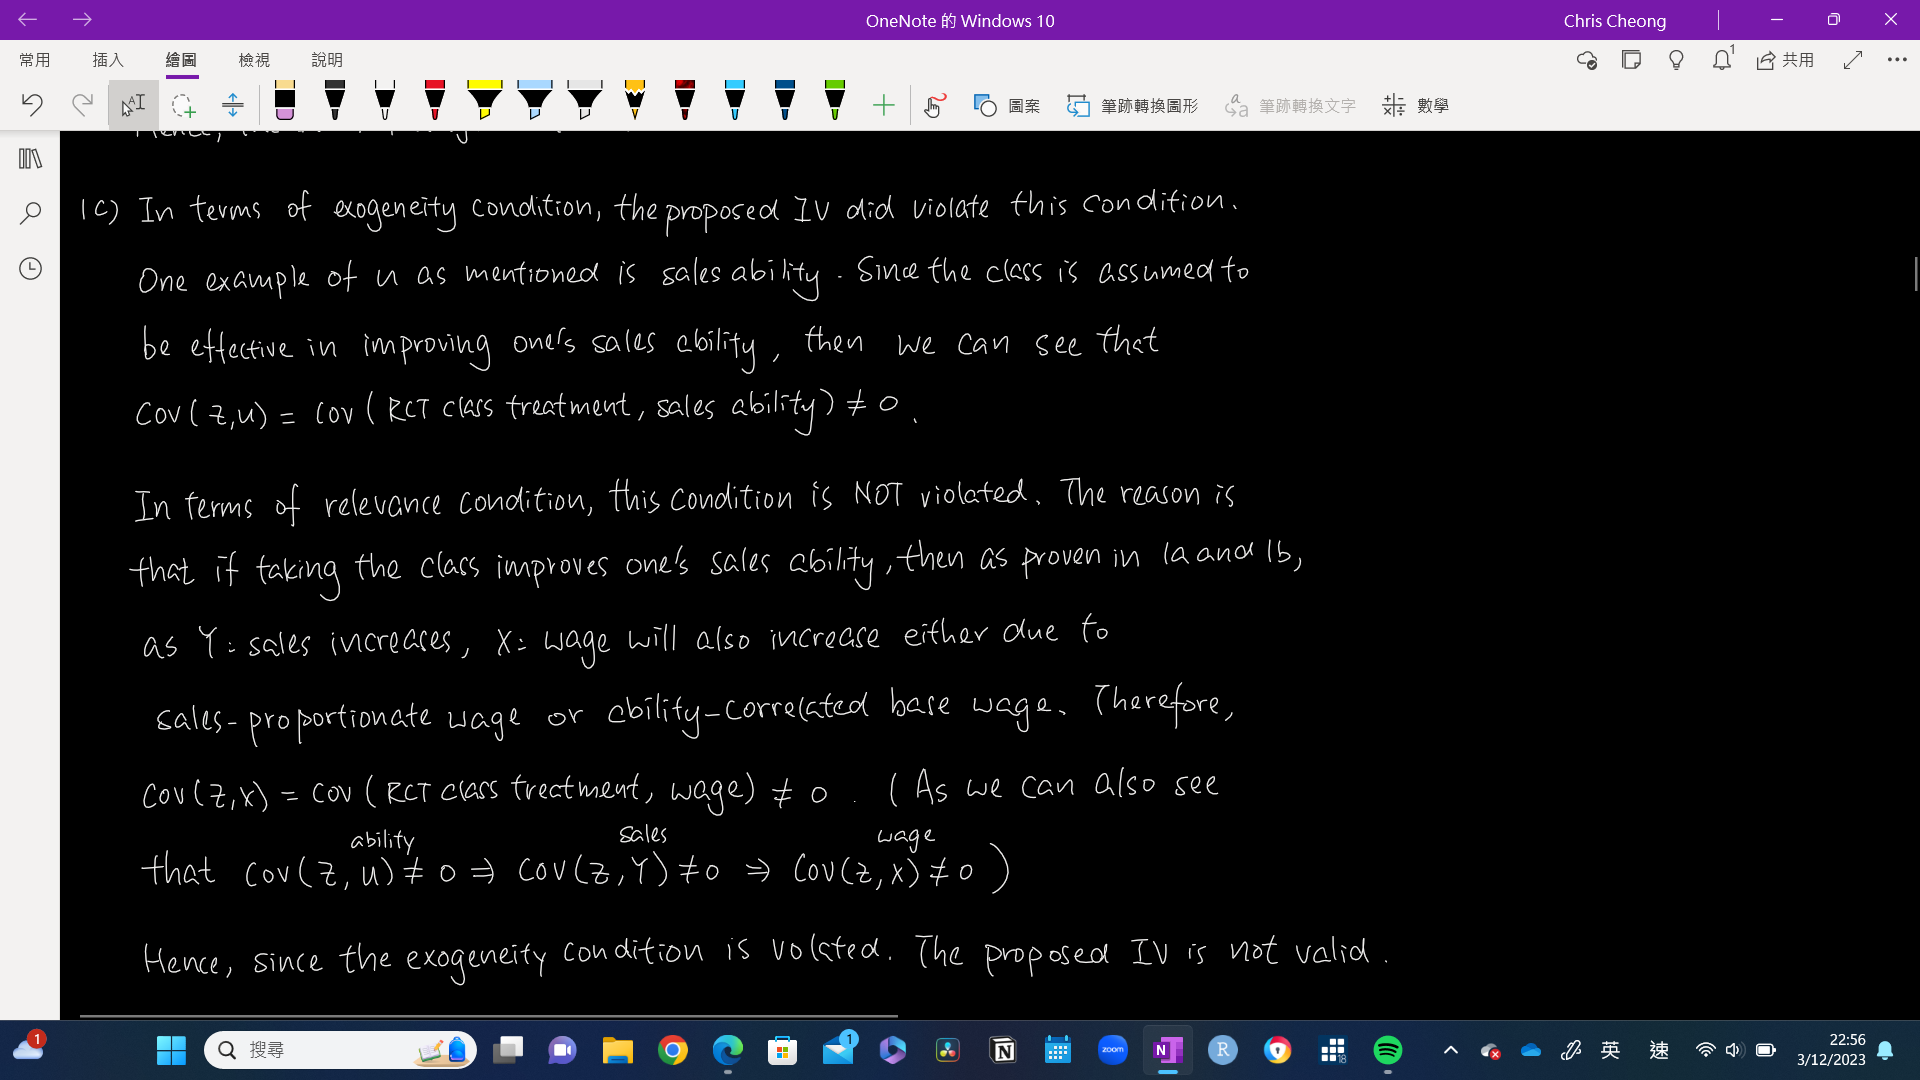 OneNote 的 Windows 10
Chris Cheong
常用 插入 繪圖 檢視 說明
1 共用
圖案 筆跡轉換圖形 筆跡轉換文字 數學
Hence,
1c) In terms of exogeneity condition, the proposed IV did violate this condition.
One example of u as mentioned is sales ability. Since the class is assumed to
be effective in improving one's sales ability, then we can see that
Cov(z,u) = Cov(RCT class treatment, sales ability) ≠ 0.
In terms of relevance condition, this condition is NOT violated. The reason is
that if taking the class improves one's sales ability, then as proven in 1a and 1b,
as Y: sales increases, X: wage will also increase either due to
sales-proportionate wage or ability-correlated base wage. Therefore,
Cov(z,x) = Cov(RCT class treatment, wage) ≠ 0. (As we can also see
ability sales wage
that Cov(z,u) ≠ 0 ⇒ Cov(z,Y) ≠ 0 ⇒ Cov(z,x) ≠ 0)
Hence, since the exogeneity condition is volated. The proposed IV is not valid.
1
搜尋
1
zoom
N
R
18
英 速
22:56
3/12/2023